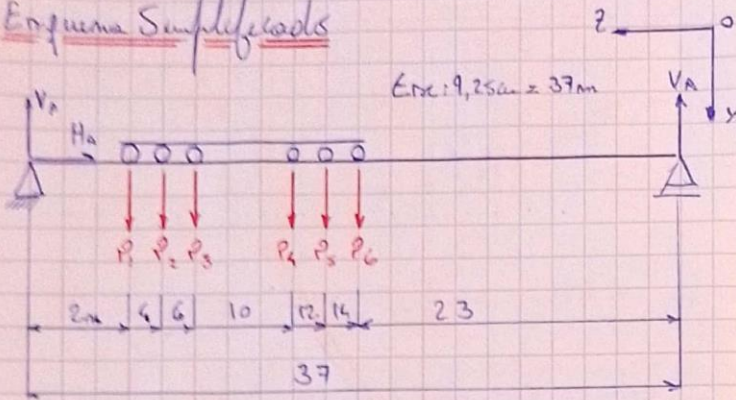 Esquema Simplificado
Z O
Esc: 9,25cm = 37m
VA VA
HA y
P1 P2 P3 P4 P5 P6
2m 4 6 10 12 14 23
37